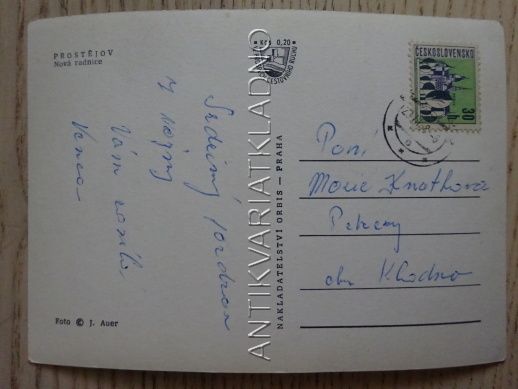 PROSTĚJOV
Nová radnice
Srdečný pozdrav
z vojny
Vám zasílá
Foto © J. Auer
Kčs 0,20
CESTOVNÍHO RUCHU
ANTIKVARIATKLADNO
NAKLADATELSTVÍ ORBIS — PRAHA
ČESKOSLOVENSKO
30
Paní
Knotková
okr. Kladno